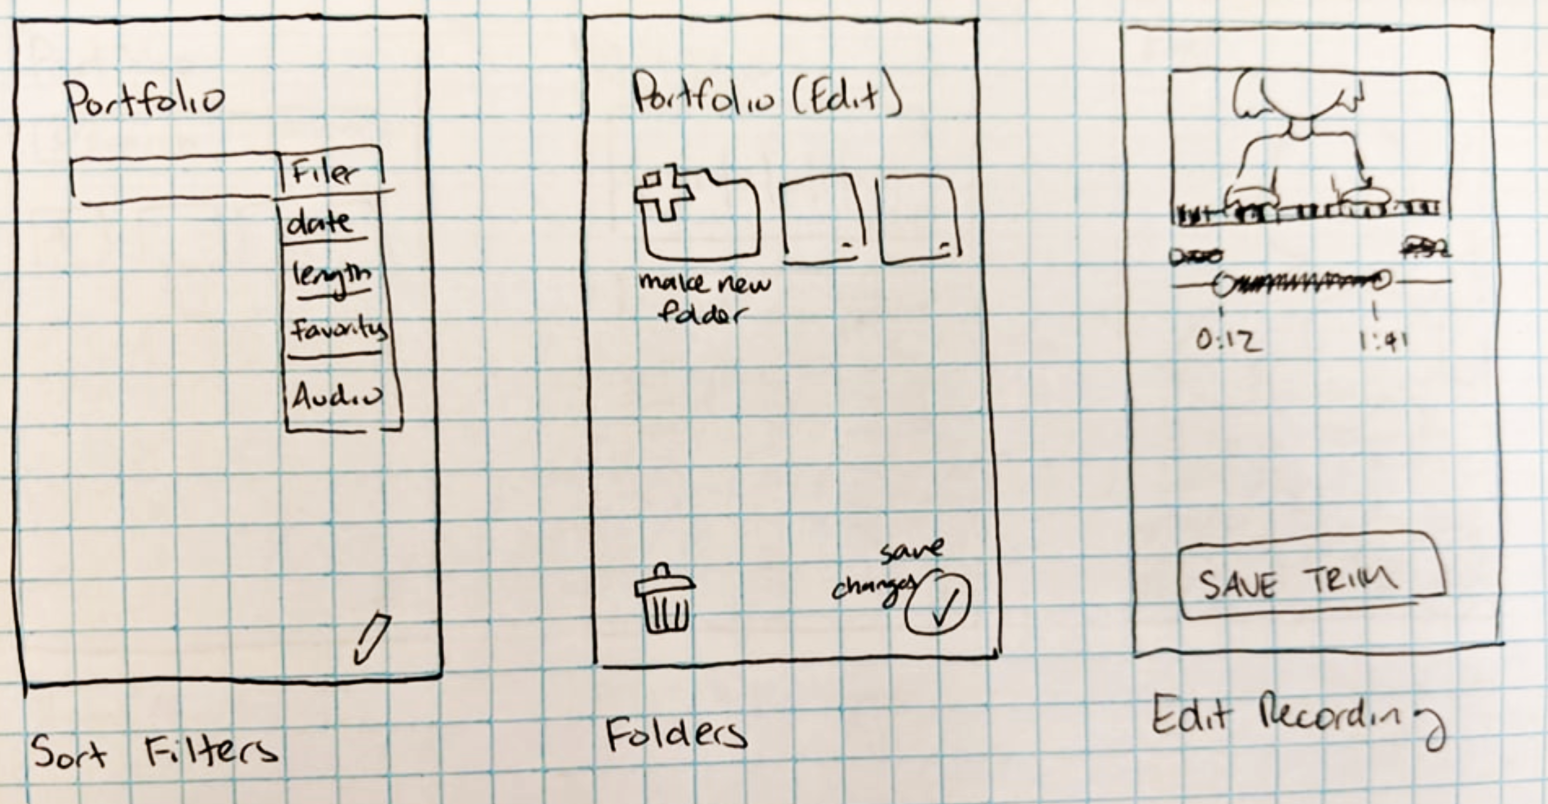 Portfolio
Filer
date
length
Favoritys
Audio
Sort Filters
Portfolio (Edit)
make new
folder
save
changes
Folders
0:12
1:41
SAVE TRIM
Edit Recording